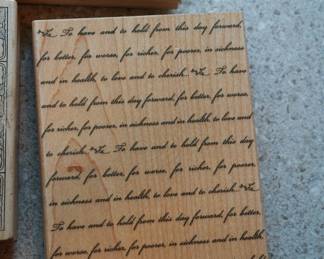 To have and to hold from this day forward,
for better, for worse, for richer, for poorer, in sickness
and in health, to love and to cherish. To have
and to hold from this day forward, for better, for worse,
for richer, for poorer, in sickness and in health, to love and
to cherish. To have and to hold from this day
forward, for better, for worse, for richer, for poorer,
in sickness and in health, to love and to cherish.
To have and to hold from this day forward, for better,
for worse, for richer, for poorer, in sickness and in health,